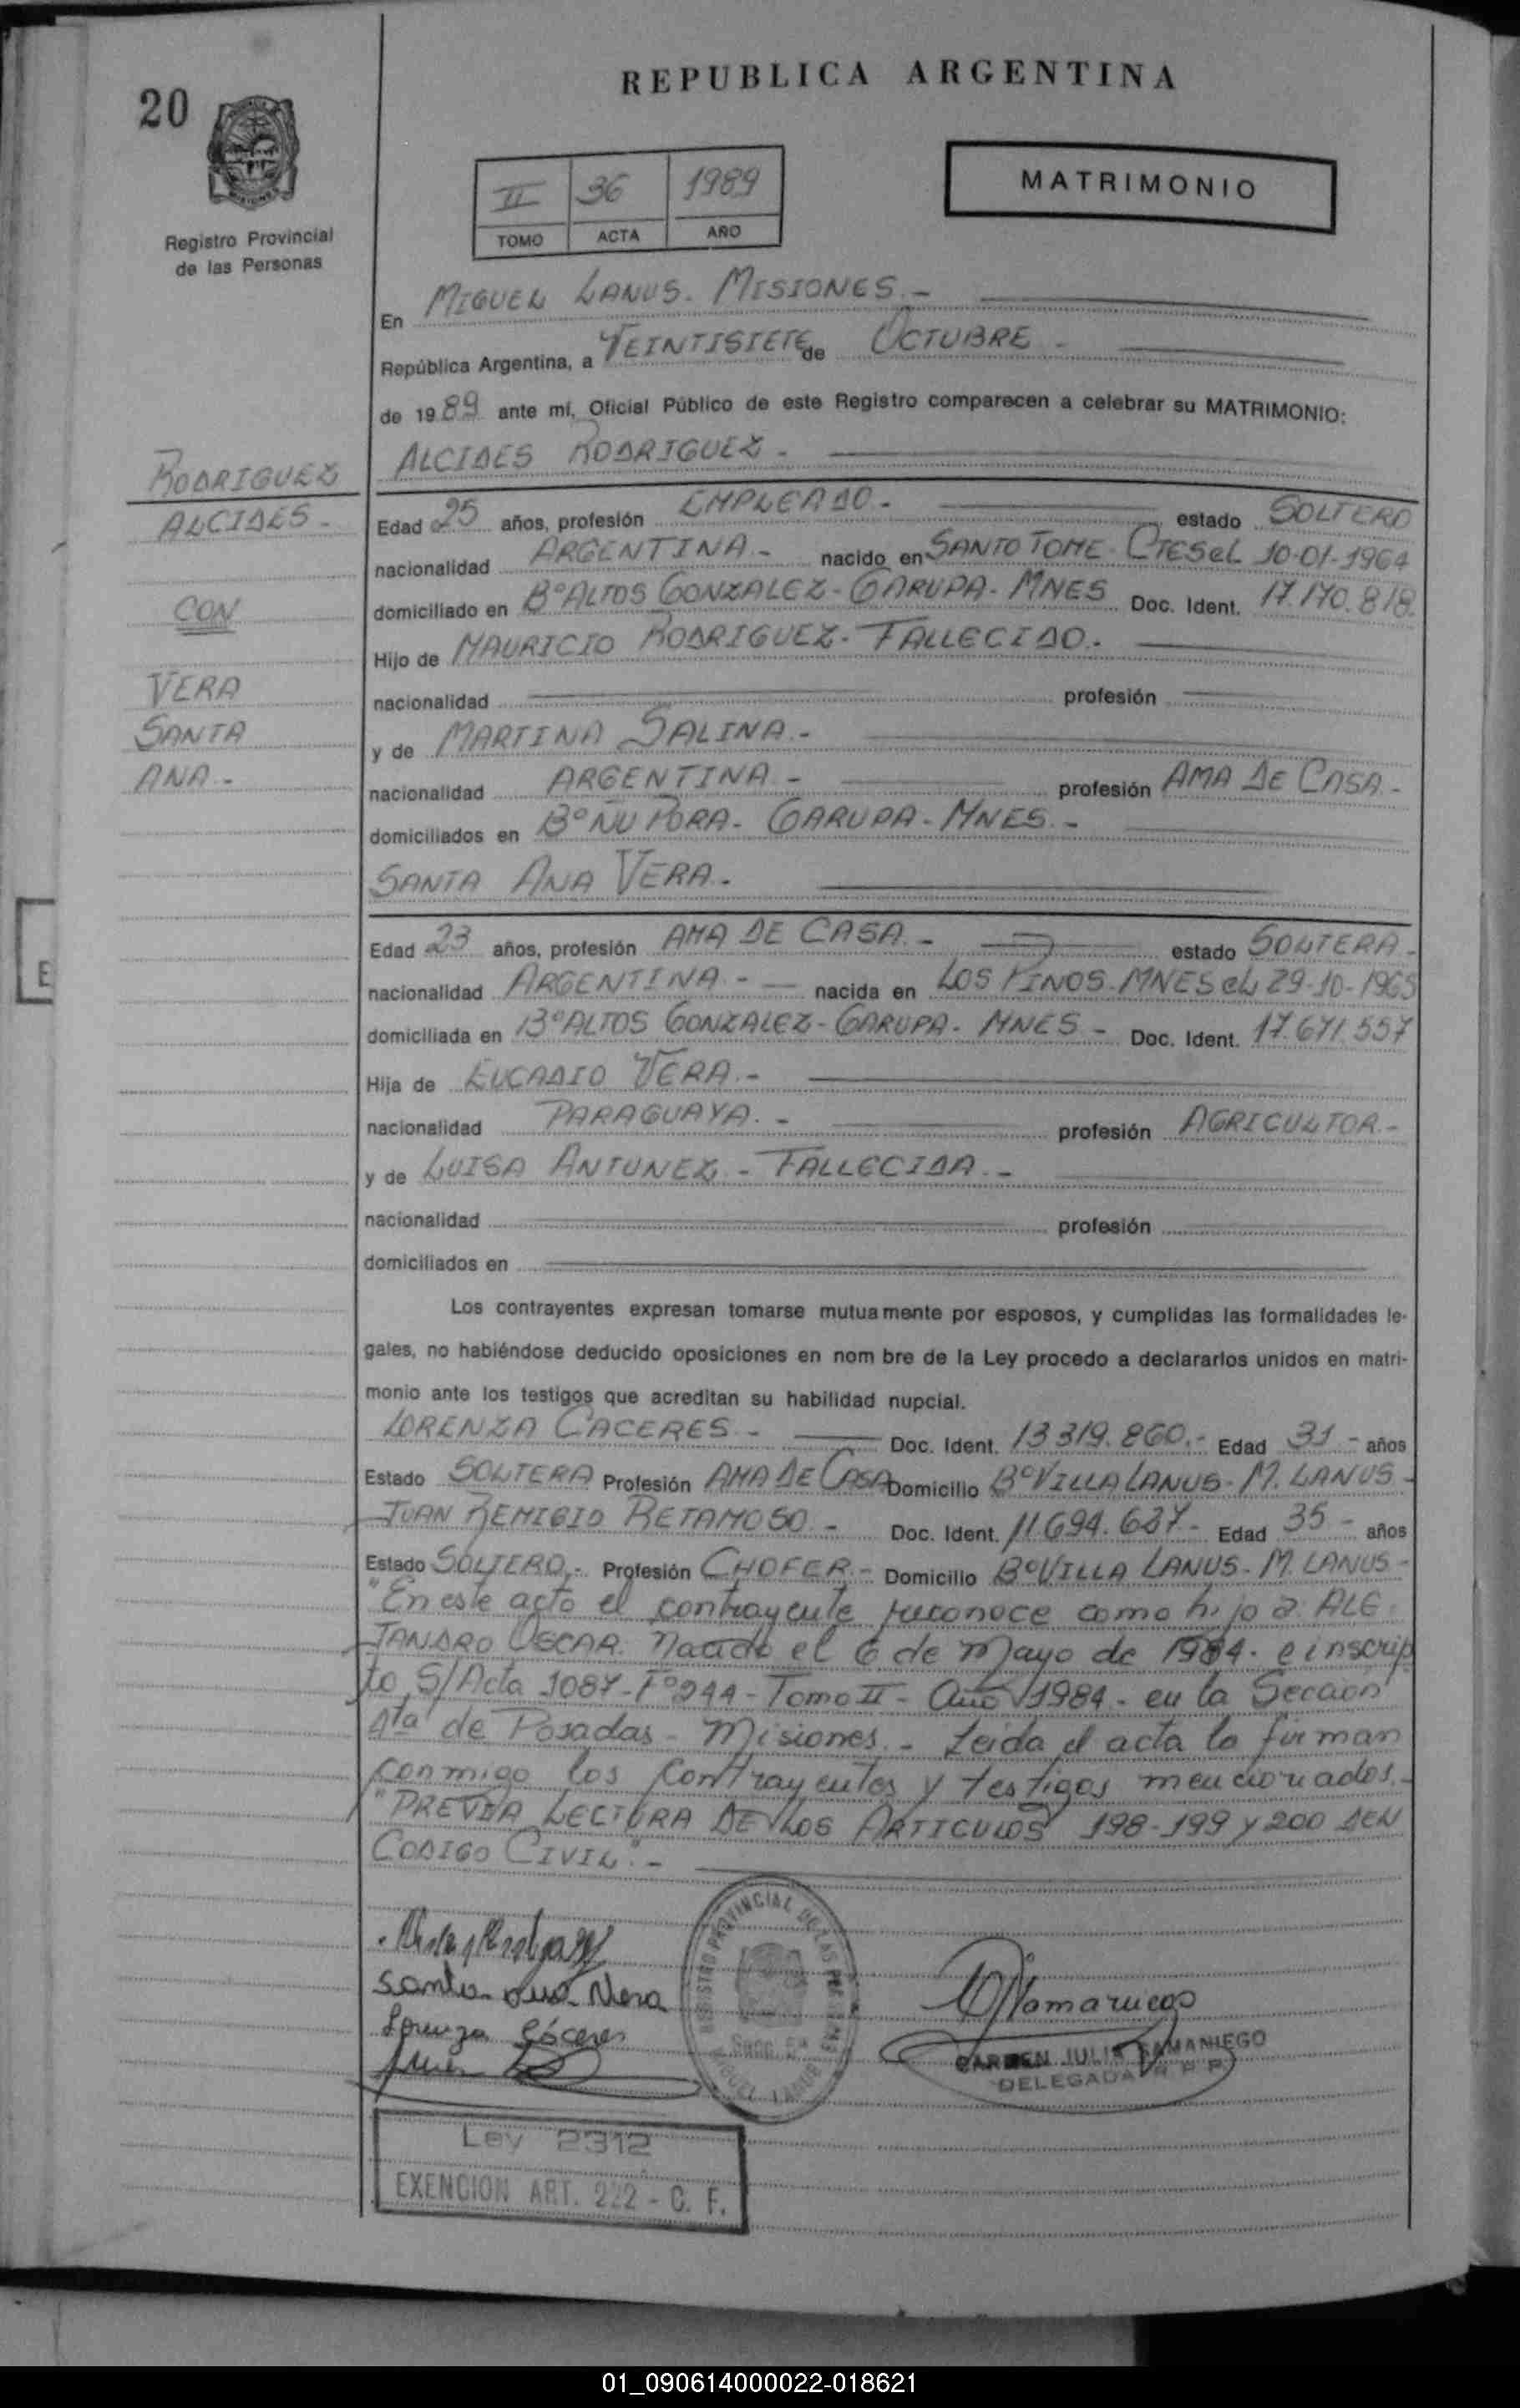 REPUBLICA ARGENTINA
20
II 36 1989
TOMO ACTA AÑO
MATRIMONIO
Registro Provincial
de las Personas
En MIGUEL LANUS. MISIONES.-
República Argentina, a VEINTISIETE de OCTUBRE -
de 1989 ante mí, Oficial Público de este Registro comparecen a celebrar su MATRIMONIO:
RODRIGUEZ
ALCIDES -
CON
VERA
SANTA
ANA -
ALCIDES RODRIGUEZ -
Edad 25 años, profesión EMPLEADO.- estado SOLTERO
nacionalidad ARGENTINA.- nacido en SANTO TOME - CTES el 10-01-1964
domiciliado en Bº ALTOS GONZALEZ - GARUPA - MNES Doc. Ident. 17.170.818.
Hijo de MAURICIO RODRIGUEZ - FALLECIDO.-
nacionalidad profesión
y de MARTINA SALINA.-
nacionalidad ARGENTINA - profesión AMA DE CASA.-
domiciliados en Bº ÑU PORA - GARUPA - MNES.-
SANTA ANA VERA.-
Edad 23 años, profesión AMA DE CASA.- estado SOLTERA -
nacionalidad ARGENTINA.- nacida en LOS PINOS - MNES el 29-10-1965
domiciliada en Bº ALTOS GONZALEZ - GARUPA - MNES - Doc. Ident. 17.671.557
Hija de EUCADIO VERA.-
nacionalidad PARAGUAYA.- profesión AGRICULTOR.-
y de LUISA ANTUNEZ - FALLECIDA.-
nacionalidad profesión
domiciliados en
Los contrayentes expresan tomarse mutuamente por esposos, y cumplidas las formalidades le-
gales, no habiéndose deducido oposiciones en nom bre de la Ley procedo a declararlos unidos en matri-
monio ante los testigos que acreditan su habilidad nupcial.
LORENZA CACERES - Doc. Ident. 13 319.860.- Edad 31 - años
Estado SOLTERA Profesión AMA DE CASA Domicilio Bº VILLA LANUS - M. LANUS -
JUAN REMIGIO RETAMOSO - Doc. Ident. 11.694.637 - Edad 35 - años
Estado SOLTERO.- Profesión CHOFER.- Domicilio Bº VILLA LANUS - M. LANUS -
"En este acto el contrayente reconoce como hijo a: ALE
JANDRO OSCAR. Nacido el 6 de Mayo de 1984. e inscrip
to S/Acta 1087 - Fº 244 - Tomo II - Año 1984 - en la Seccion
4ta de Posadas - Misiones.- Leida el acta la firman
conmigo los Contrayentes y testigos mencionados.-
"PREVIA LECTURA DE LOS ARTICULOS 198-199 y 200 DEL
CODIGO CIVIL".-
Santa Ana Vera
Lorenza Cáceres
REGISTRO PROVINCIAL DE LAS PERSONAS
MIGUEL LANUS
CARMEN JULIA SAMANIEGO
DELEGADA R P P
Ley 2312
EXENCION ART. 222 - C. F.
E
01_090614000022-018621